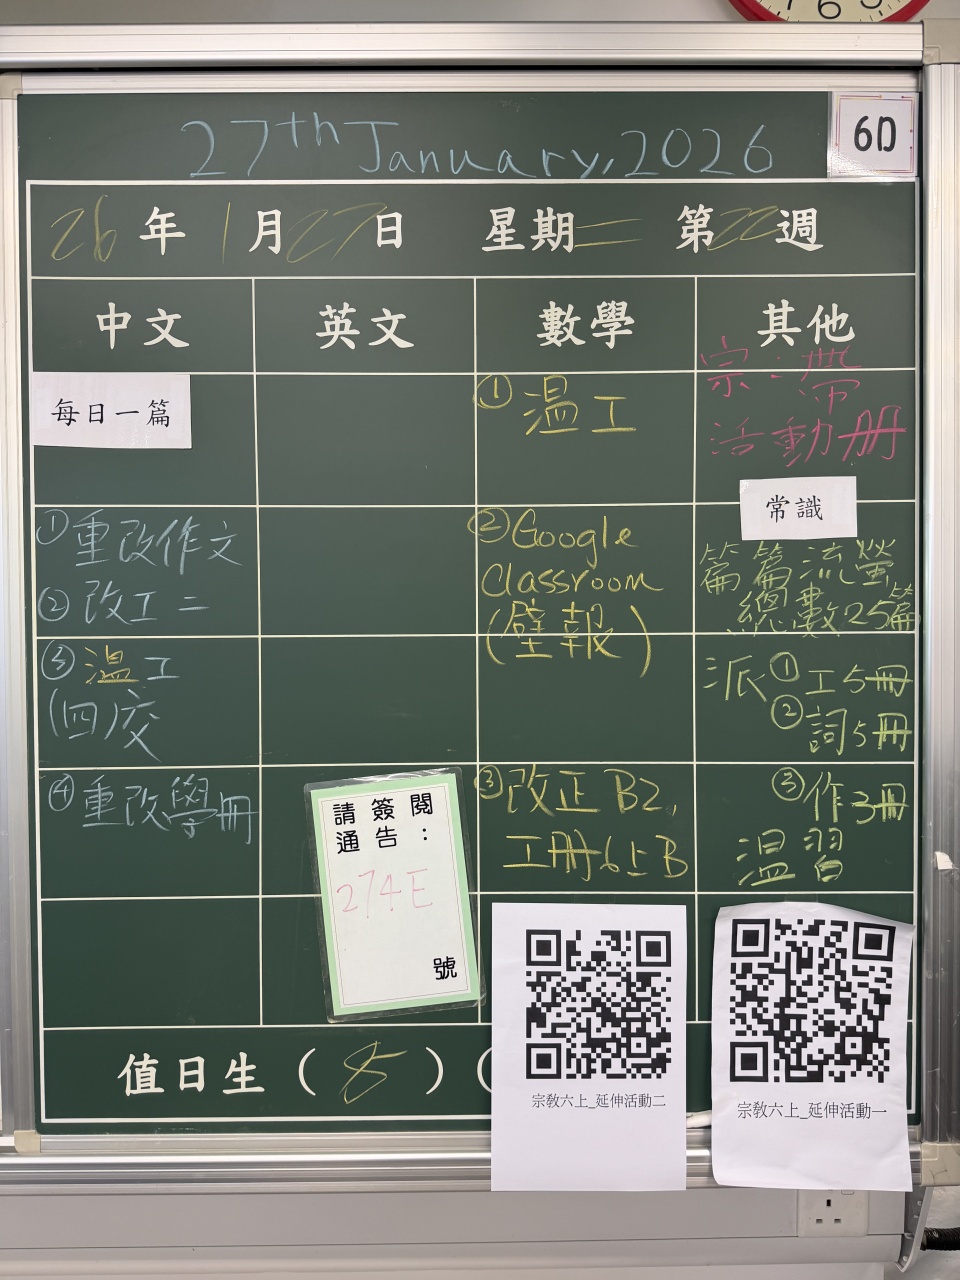 27th January, 2026
6D
26年1月27日 星期二 第22週
中文
英文
數學
其他
每日一篇
①重改作文
②改工二
③温工
(四)交
④重改學冊
請簽閱
通告：
274E
號
①温工
②Google
Classroom
(壁報)
③改正B2,
工冊6上B
宗：帶
活動冊
常識
篇篇流螢
總數25篇
派①工5冊
②詞5冊
③作3冊
温習
值日生（8）（
宗教六上_延伸活動二
宗教六上_延伸活動一